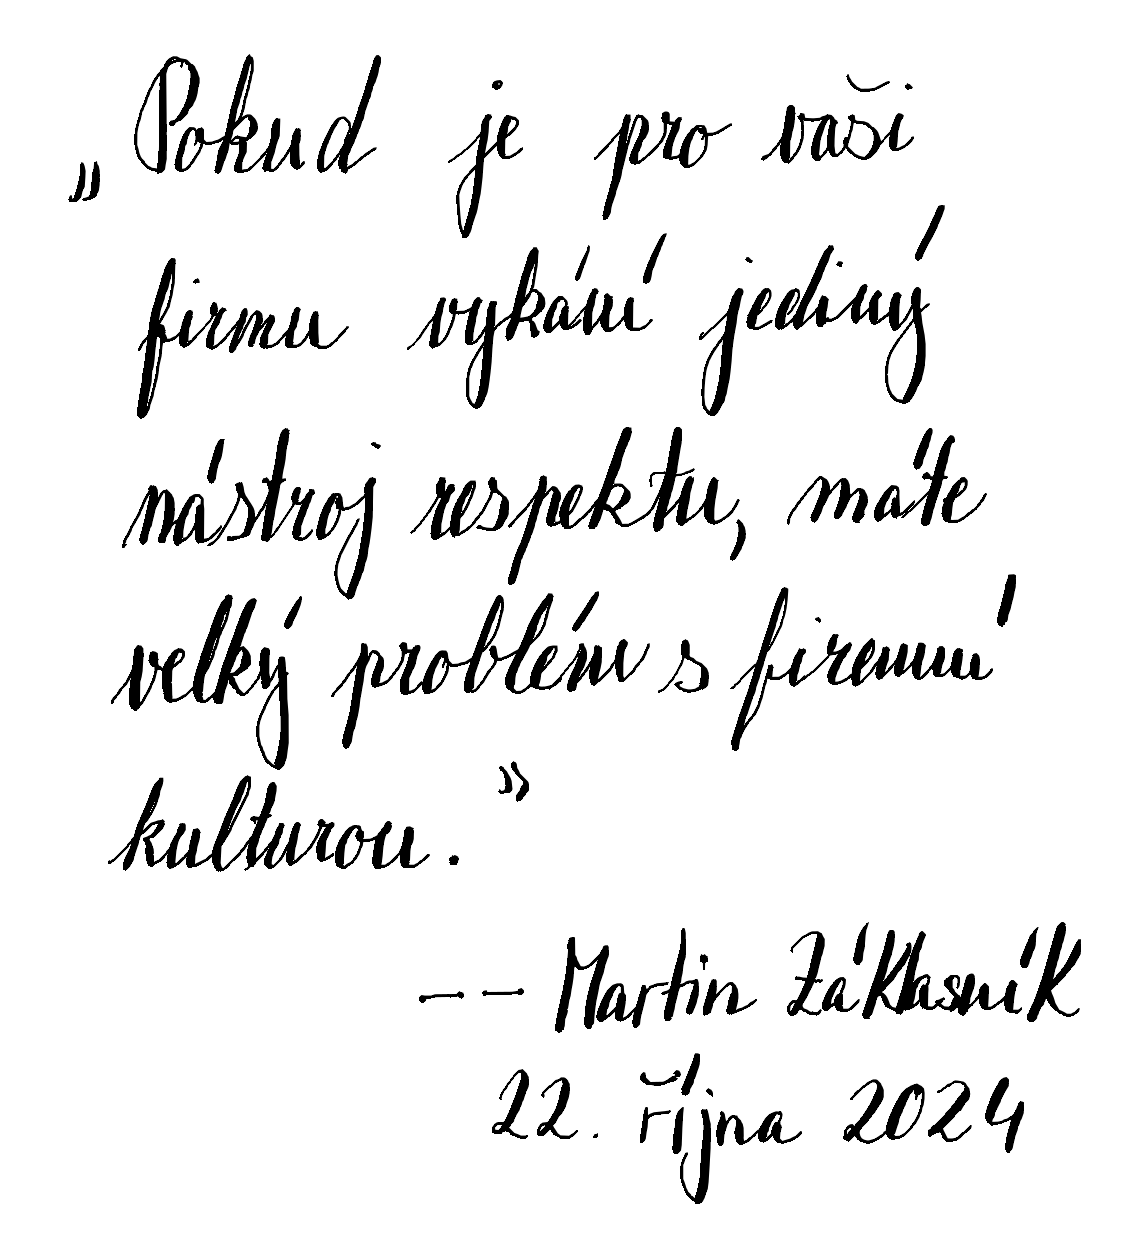 „Pokud je pro vaši
firmu vykání jediný
nástroj respektu, máte
velký problém s firemní
kulturou.”
-- Martin Záklasník
22. října 2024